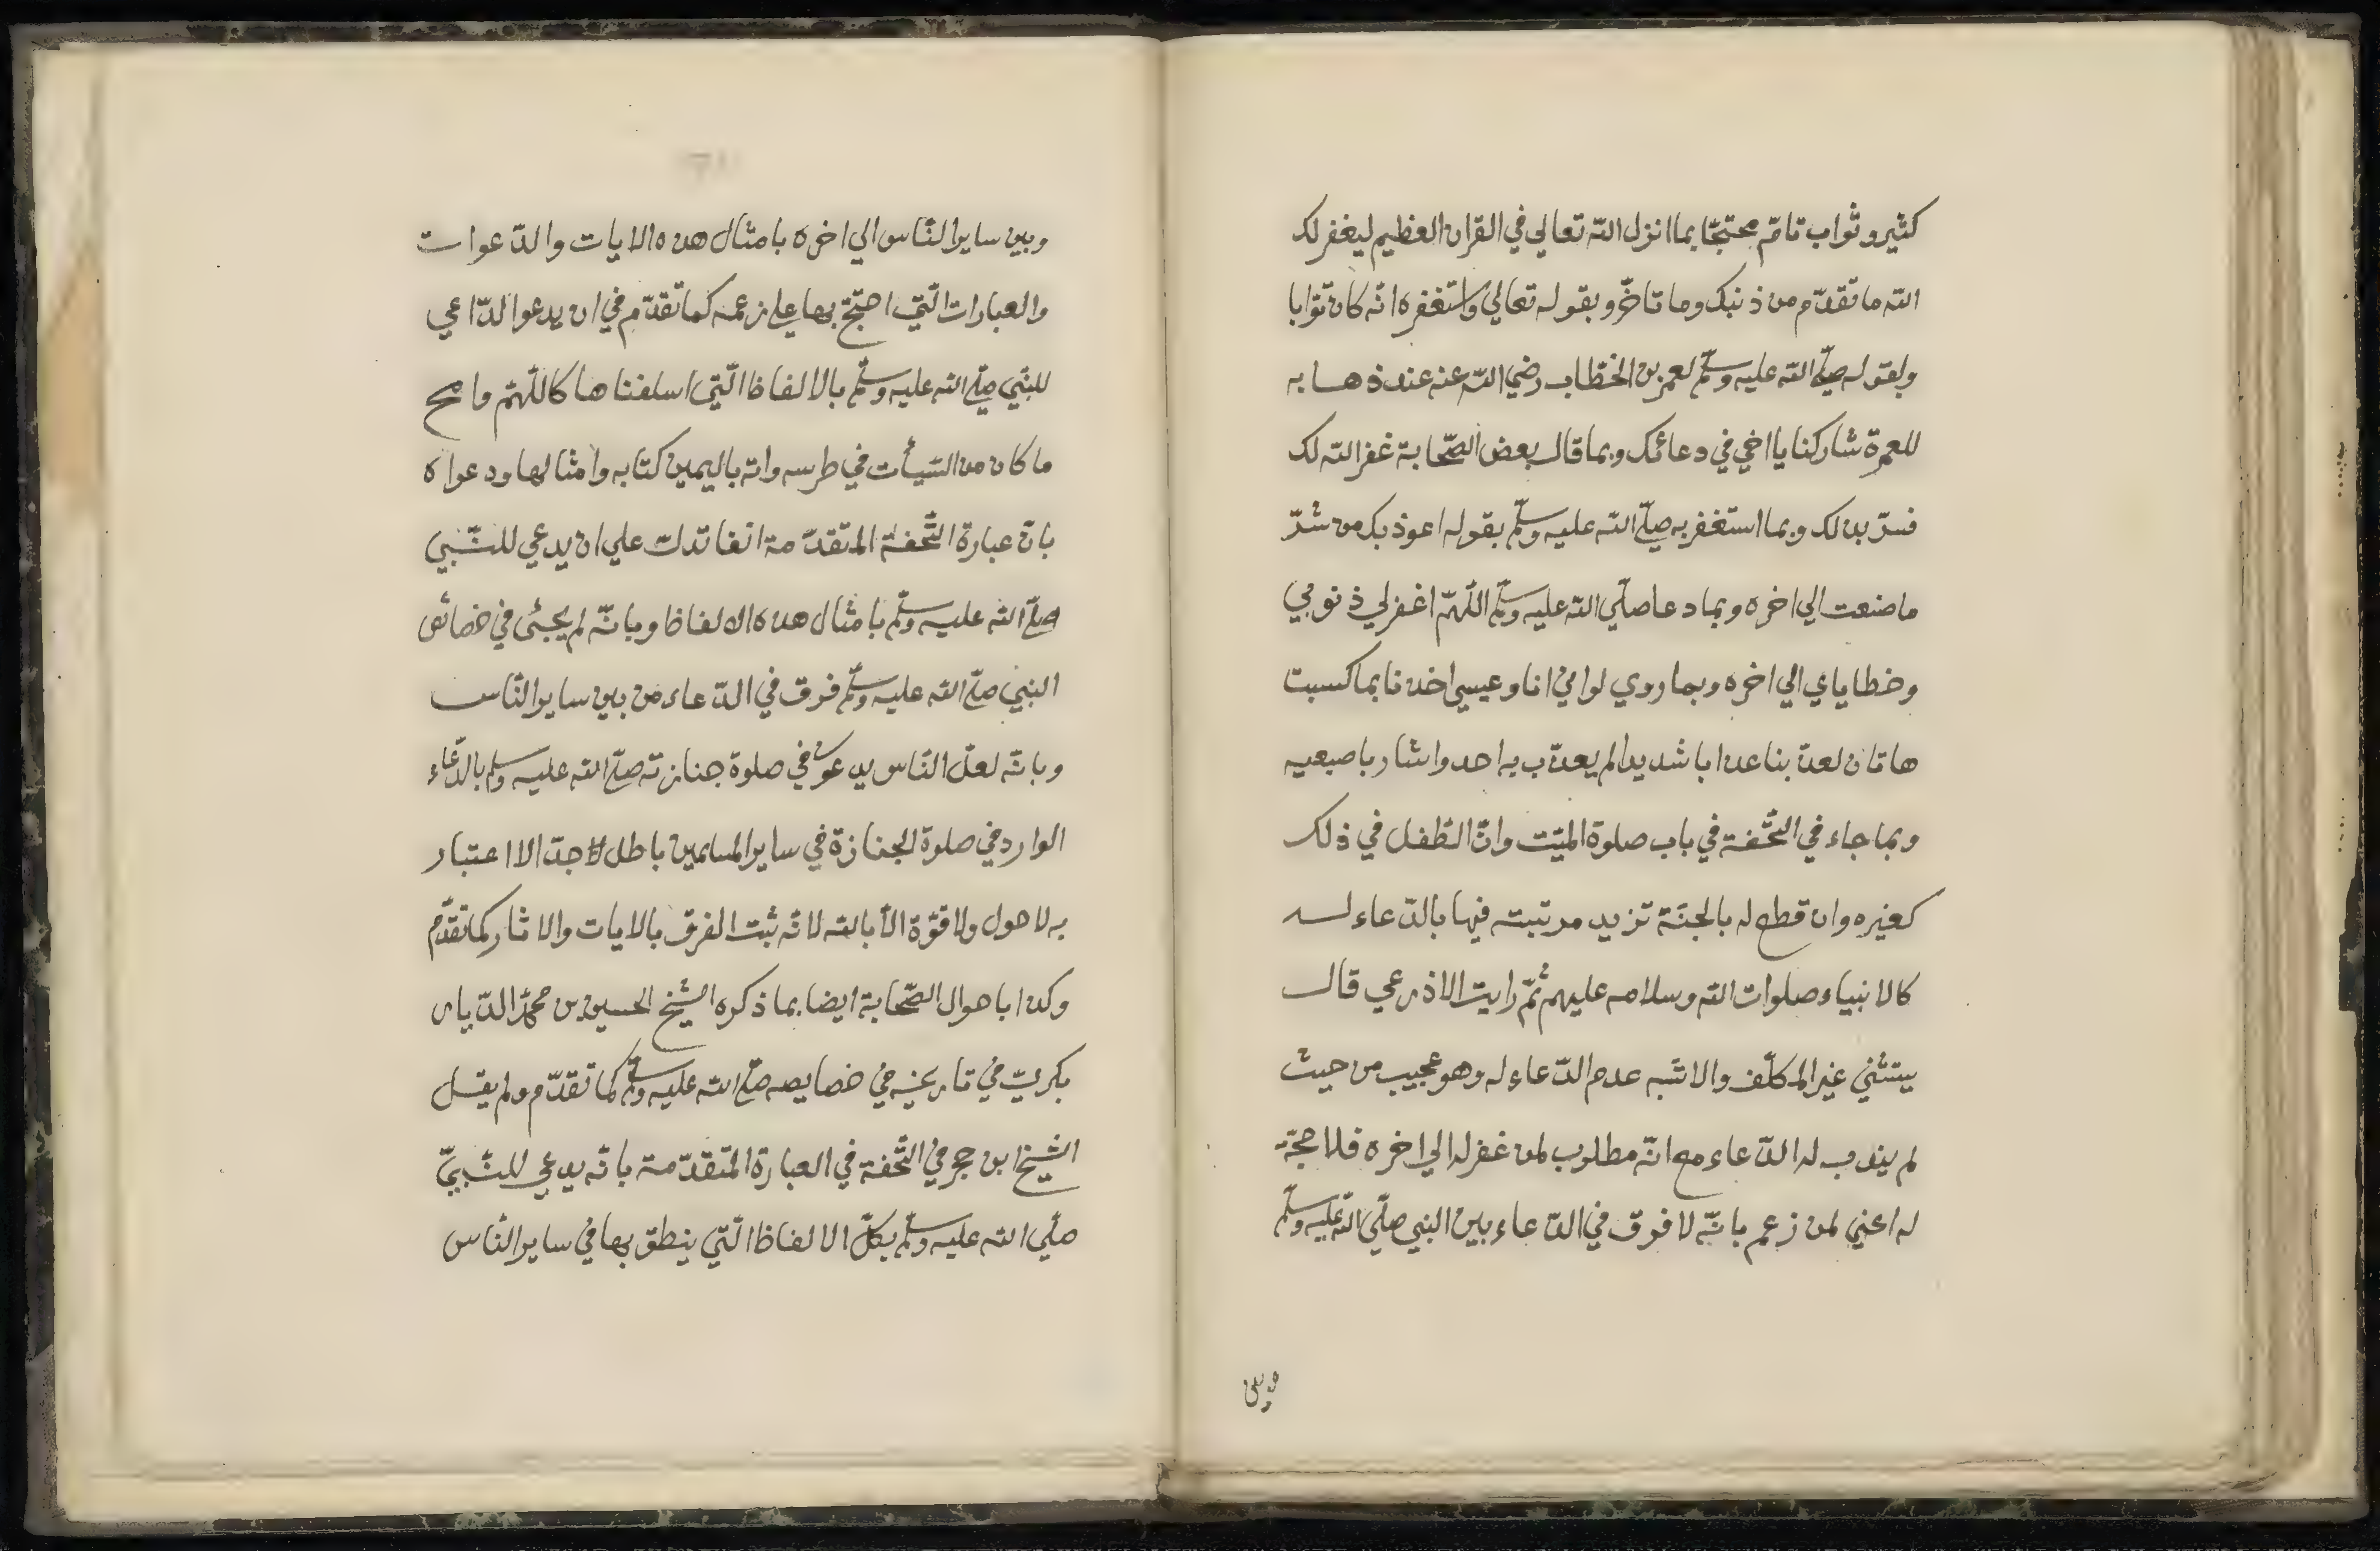 كثير وثواب تامّ محتجّا بما انزل الله تعالي في القران العظيم ليغفر لك
الله ما تقدّم من ذنبك وما تاخّر وبقوله تعالي واستغفره انّه كان توّابا
وبقوله صلّي الله عليه وسلّم لعمر بن الخطّاب رضي الله عنه عند ذهابه
للعمرة شاركنا يا اخي في دعائك وبما قال بعض الصّحابة غفر الله لك
فسرّ بذلك وبما استغفر به صلّي الله عليه وسلّم بقوله اعوذ بك من شرّ
ما صنعت الي اخره وبما دعا صلّي الله عليه وسلّم اللّهمّ اغفرلي ذنوبي
وخطاياي الي اخره وبما روي لو اني انا وعيسي اخذنا بما كسبت
هاتان لعذّبنا عذابا شديدا لم يعذّب به احد واشار باصبعيه
وبما جاء في التّحفة في باب صلوة الميّت وانّ الطّفل في ذلك
كغيره وان قطع له بالجنّة تزيد مرتبته فيها بالدّعاء له
كالانبياء صلوات الله وسلامه عليهم ثمّ رايت الاذرعي قال
يستثني غير المكلّف والاشبه عدم الدّعاء له وهو عجيب من حيث
لم يندب له الدّعاء مع انّه مطلوب لمن غفر له الي اخره فلا حجّة
له اعني لمن زعم بانّه لا فرق في الدّعاء بين النبي صلّي الله عليه وسلّم
وبين
وبين ساير النّاس الي اخره بامثال هذه الايات والدّعوات
والعبارات الّتي احتجّ بها علي زعمه كما تقدّم في ان يدعو الدّاعي
للنّبي صلّي الله عليه وسلّم بالالفاظ الّتي اسلفناها كاللّهمّ وامح
ما كان من السّيأت في طرسه واته باليمين كتابه وامثالها ودعواه
بانّ عبارة التّحفة المتقدّمة انفا تدلّ علي ان يدعي للنّبي
صلّي الله عليه وسلّم بامثال هذه الالفاظ وبانّه لم يجئ في خصائص
النبي صلّي الله عليه وسلّم فرق في الدّعاء من بين ساير النّاس
وبانّه لعلّ النّاس يدعون في صلوة جنازته صلّي الله عليه وسلم بالدّعاء
الوارد في صلوة الجنازة في ساير المسلمين باطل جدّا لا اعتبار
به لا حول ولا قوّة الّا بالله لانّه ثبت الفرق بالايات والاثار كما تقدّم
وكذا باحوال الصّحابة ايضا بما ذكره الشّيخ الحسين بن محمّد الدّيار
بكريّ في تاريخه في خصايصه صلّي الله عليه وسلّم كما تقدّم ولم يقل
الشّيخ ابن حجر في التّحفة في العبارة المتقدّمة بانّه يدعي للنّبيّ
صلّي الله عليه وسلّم بكلّ الالفاظ الّتي ينطق بها في ساير النّاس